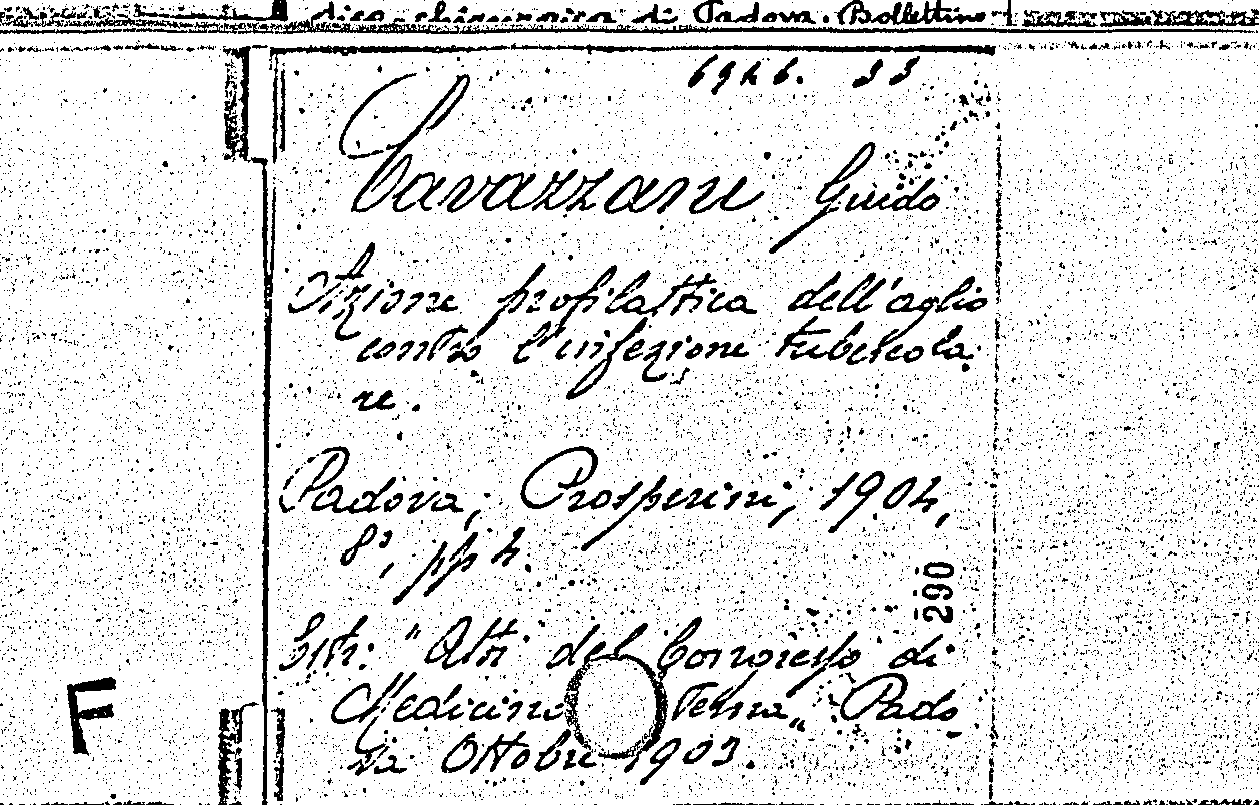 dico-chirurgica di Padova. Bollettino
Cavazzani Guido
Azione profilattica dell'aglio
contro l'infezione tubercola-
re.
Padova, Prosperini, 1904,
8°, pp 4.
290
Estr: "Atti del Congresso di
Medicina terna" Pado
va Ottobre 1903.
F